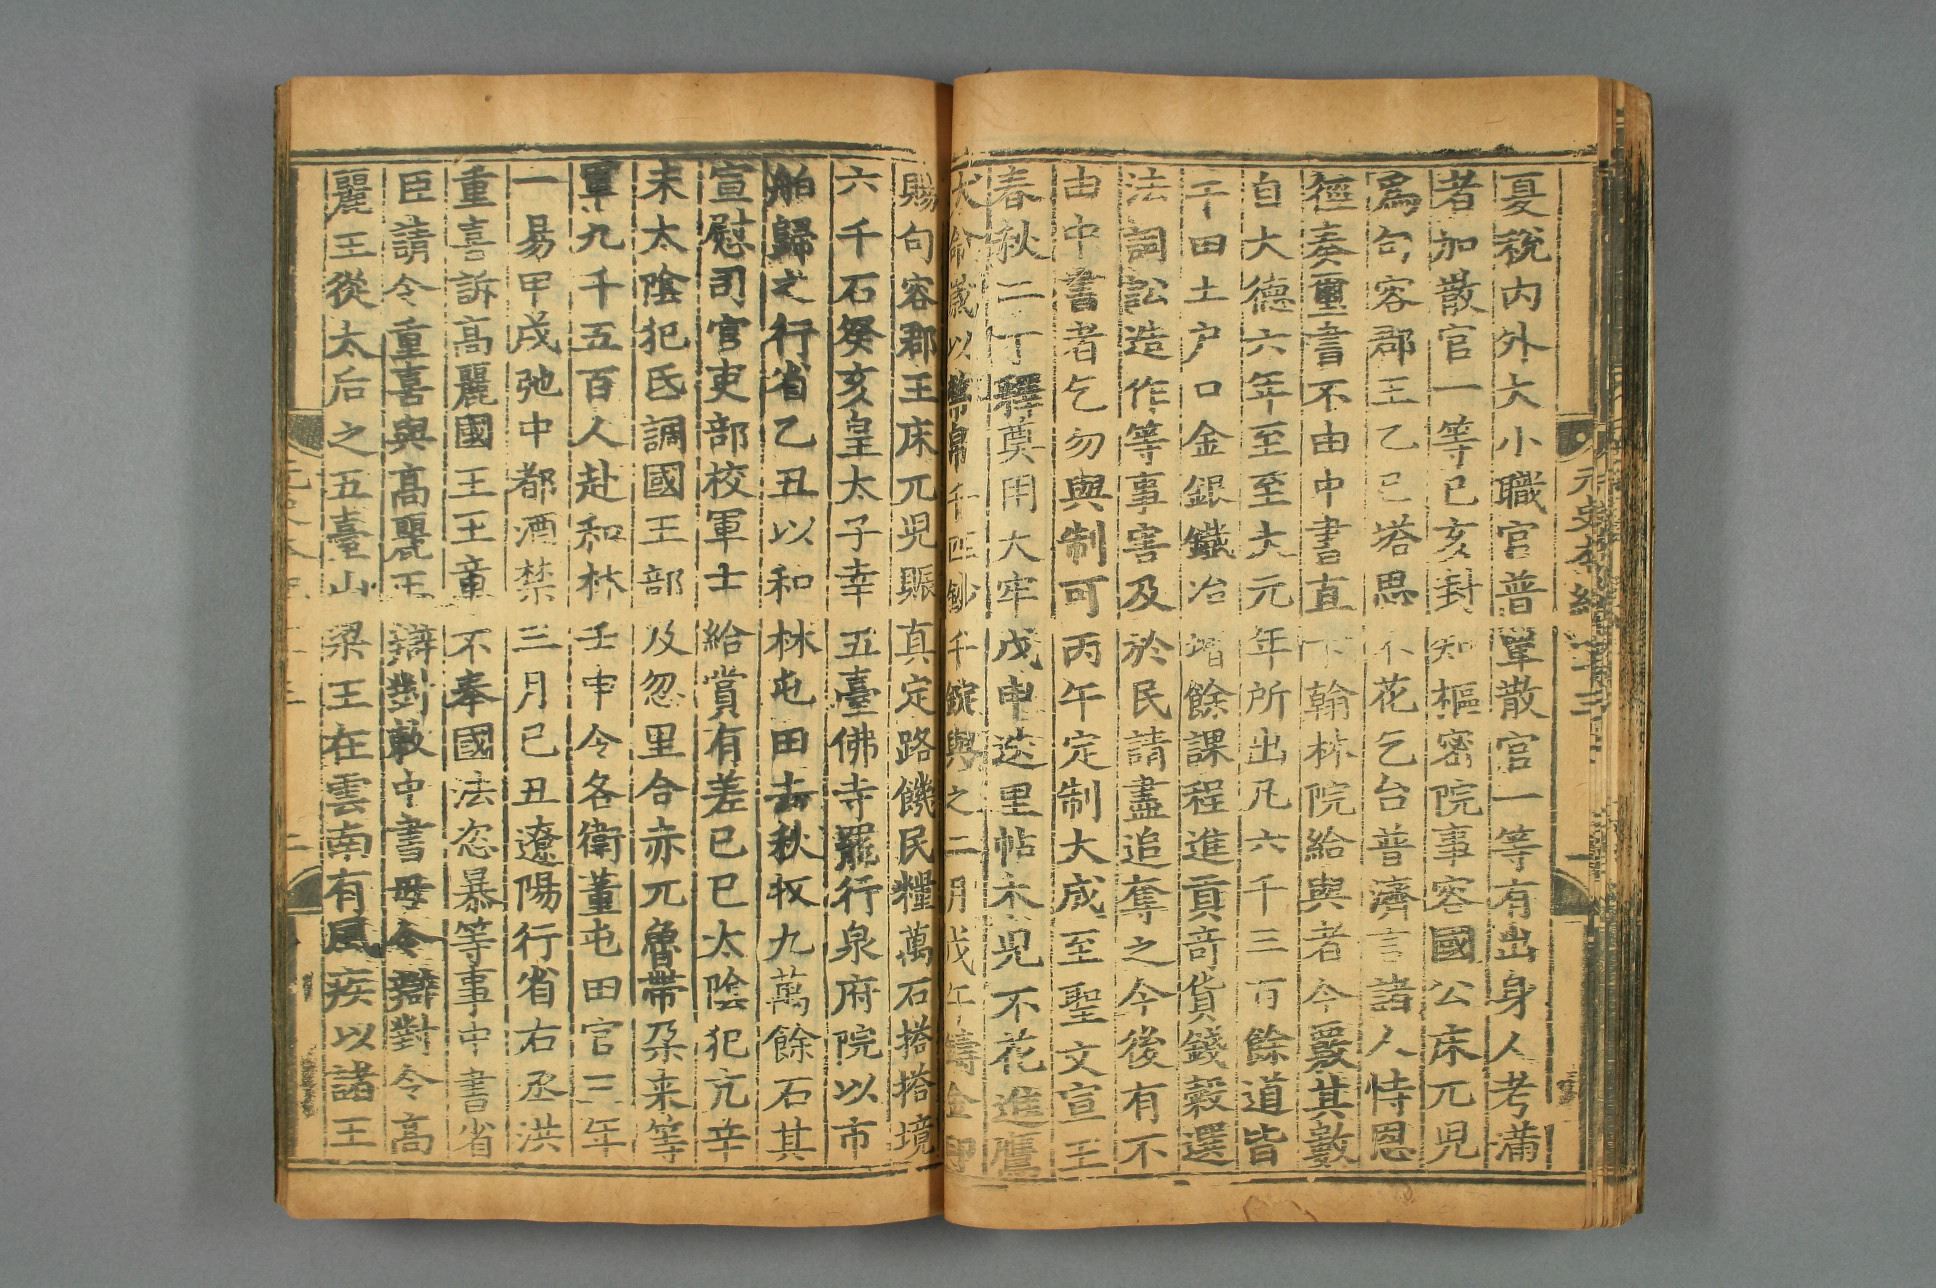 夏稅內外大小職官普覃散官一等有出身人考滿
者加散官一等己亥封知樞密院事容國公床兀兒
爲句容郡王乙巳塔思不花乞台普濟言諸人恃恩
徑奏璽書不由中書直下翰林院給與者今覈其數
自大德六年至至大元年所出凡六千三百餘道皆
干田土户口金銀鐵冶增餘課程進貢奇貨錢穀選
法詞訟造作等事害及於民請盡追奪之今後有不
由中書者乞勿與制可丙午定制大成至聖文宣王
春秋二丁釋奠用太牢戊申迭里帖木兒不花進鷹
犬命歲以幣帛千匹鈔千錠與之二月戊午鑄金印
賜句容郡王床兀兒賑真定路饑民糧萬石搭搭境
六千石癸亥皇太子幸五臺佛寺罷行泉府院以市
舶歸之行省乙丑以和林屯田去秋收九萬餘石其
宣慰司官吏部校軍士給賞有差己巳太陰犯亢辛
未太陰犯氐調國王部及忽里合赤兀魯帶朶来等
軍九千五百人赴和林壬申令各衛董屯田官三年
一易甲戌弛中都酒禁三月己丑遼陽行省右丞洪
重喜訴高麗國王王章不奉國法恣暴等事中書省
臣請令重喜與高麗王辯對敕中書毋令辯對令高
麗王從太后之五臺山梁王在雲南有風疾以諸王
元史本紀